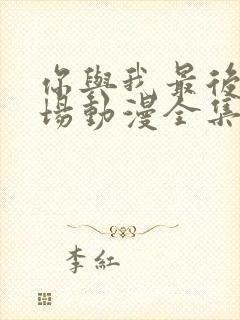 你與我最後
場動漫全集
李紅